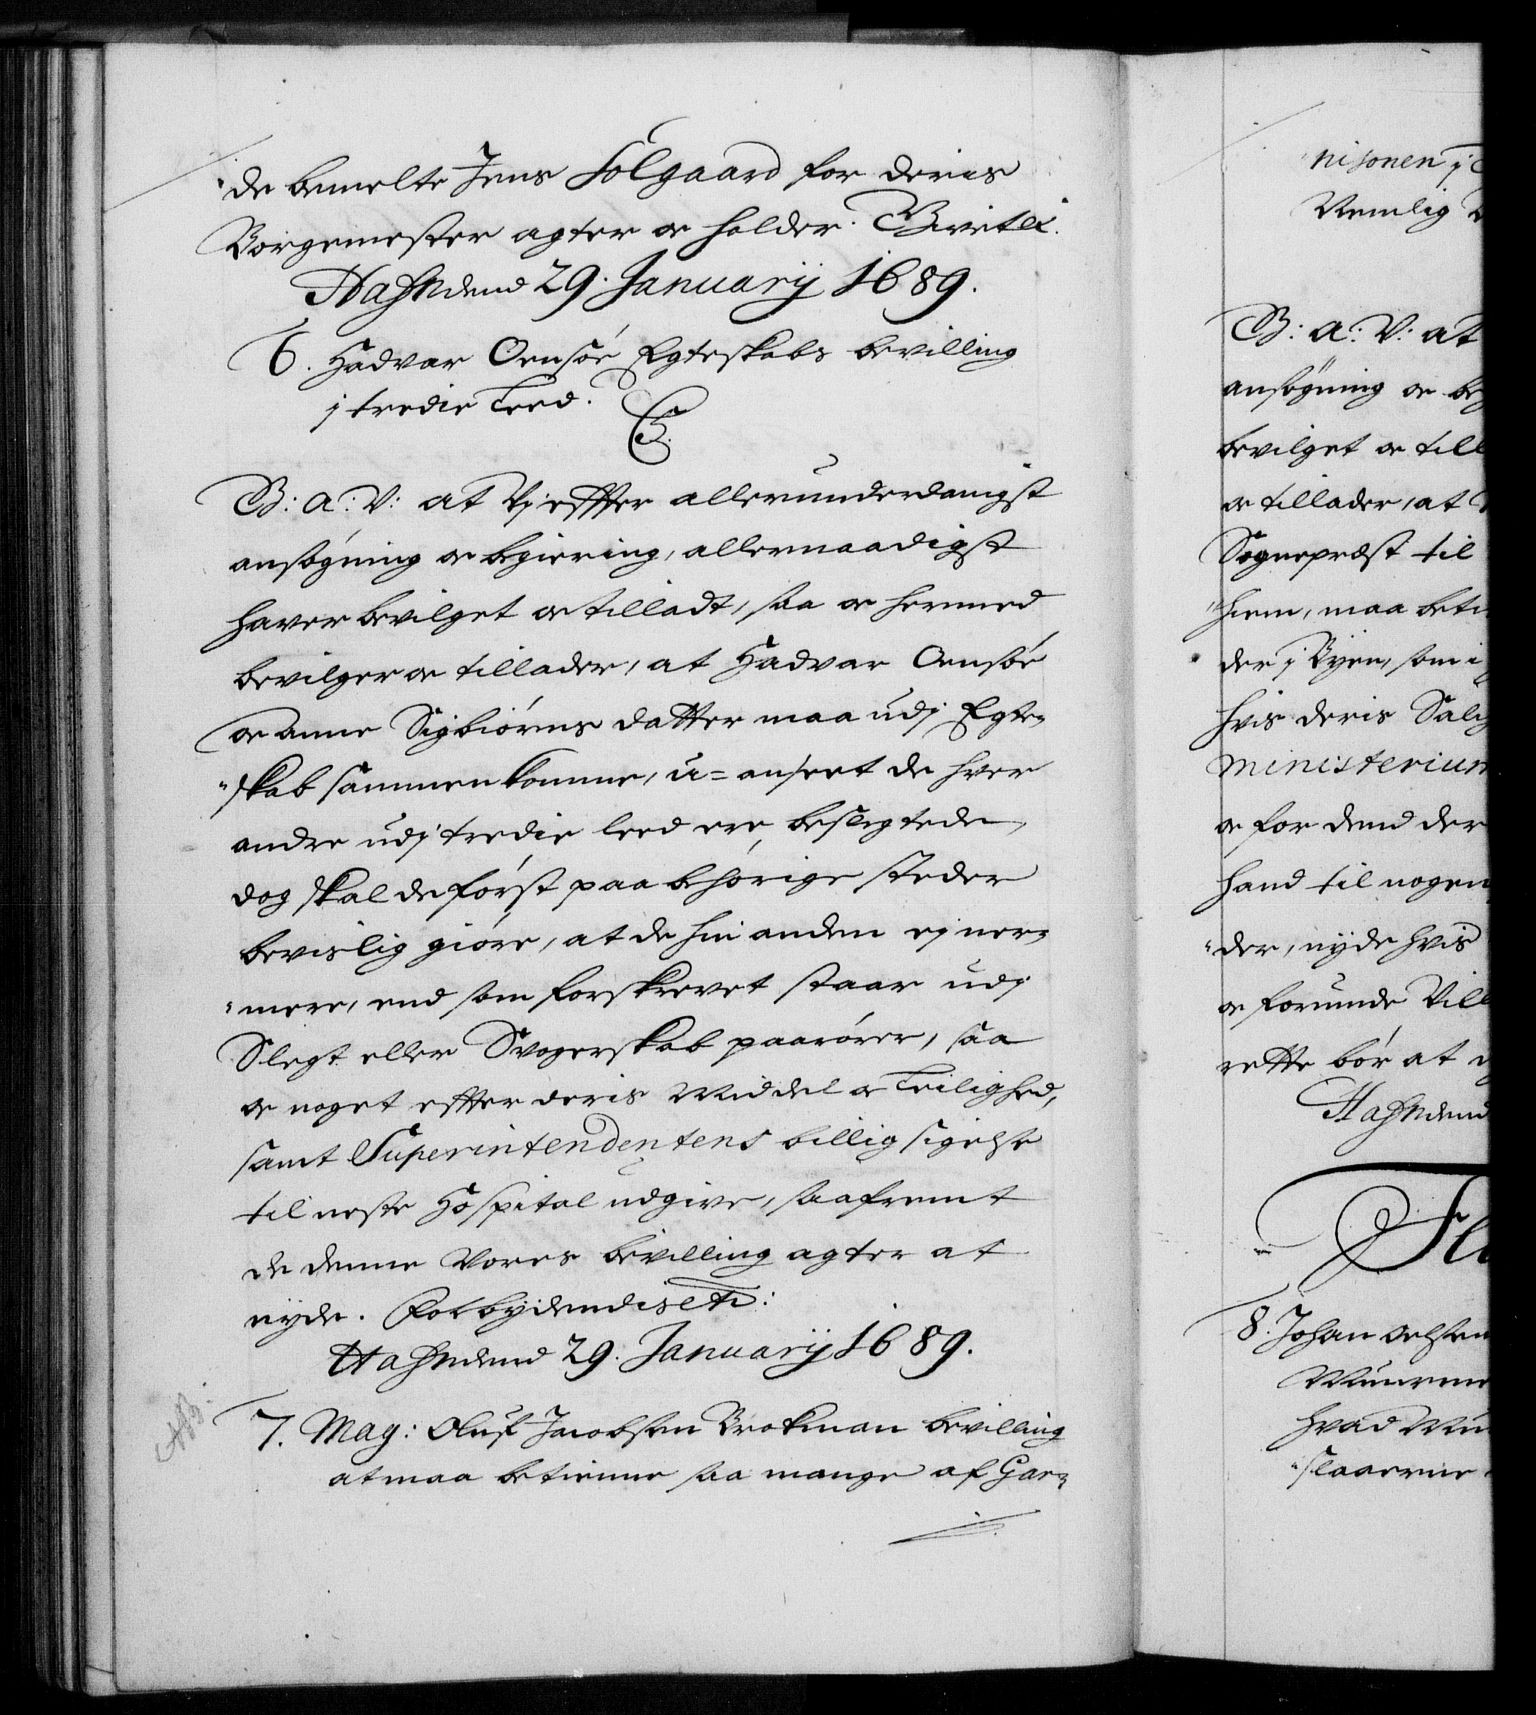 de bemelte Jens Solgaard for deris
Borgemester agter oc holder. Givet etc.
Hafn dend 29. Januarij 1689.
6. Hadvar Onsöe Egteskabs bevilling
j tredie Leed.
C5.
G: A: V: at Vj effter allerunderdanigst
ansøgning oc begiering, allernaadigst
hafver bevilget oc tilladt, saa oc hermed
bevilger oc tillader, at Hadvar Onsöe
oc Anne Sigbiörns datter maa udj Egte-
"skab sammenkomme, u=anseet de hver
andre udj tredie leed ere beslegtede,
dog skal de först paa behörige steder
bevislig giöre, at de hin anden ej ner-
"mere, end som forskrevet staar udj
Slegt eller Svogerskab paarörer, saa
oc noget effter deris Middel oc Leilighed,
samt Superintendentens billig sigelse
til neste Hospital udgive, saafremt
de denne Vores bevilling agter at
nyde. Forbydendis etc:
Hafn dend 29. Januarij 1689.
7. Mag: Oluf Jacobsen Brokman bevilling
at maa betienne saa mange af Gar-
nisonen j
Nemlig
G: A: V: at
ansøgning oc be
bevilget oc till
oc tillader, at
Sognepræst til
"hiem, maa beti
der j Byen, som i
hvis deris Salig
Ministerium
oc for dend der
hand til nogen
"der, nyde hvis
oc forunde Vill
rette bör at
Hafn dend
8. Johan
hvad
"slaaerne